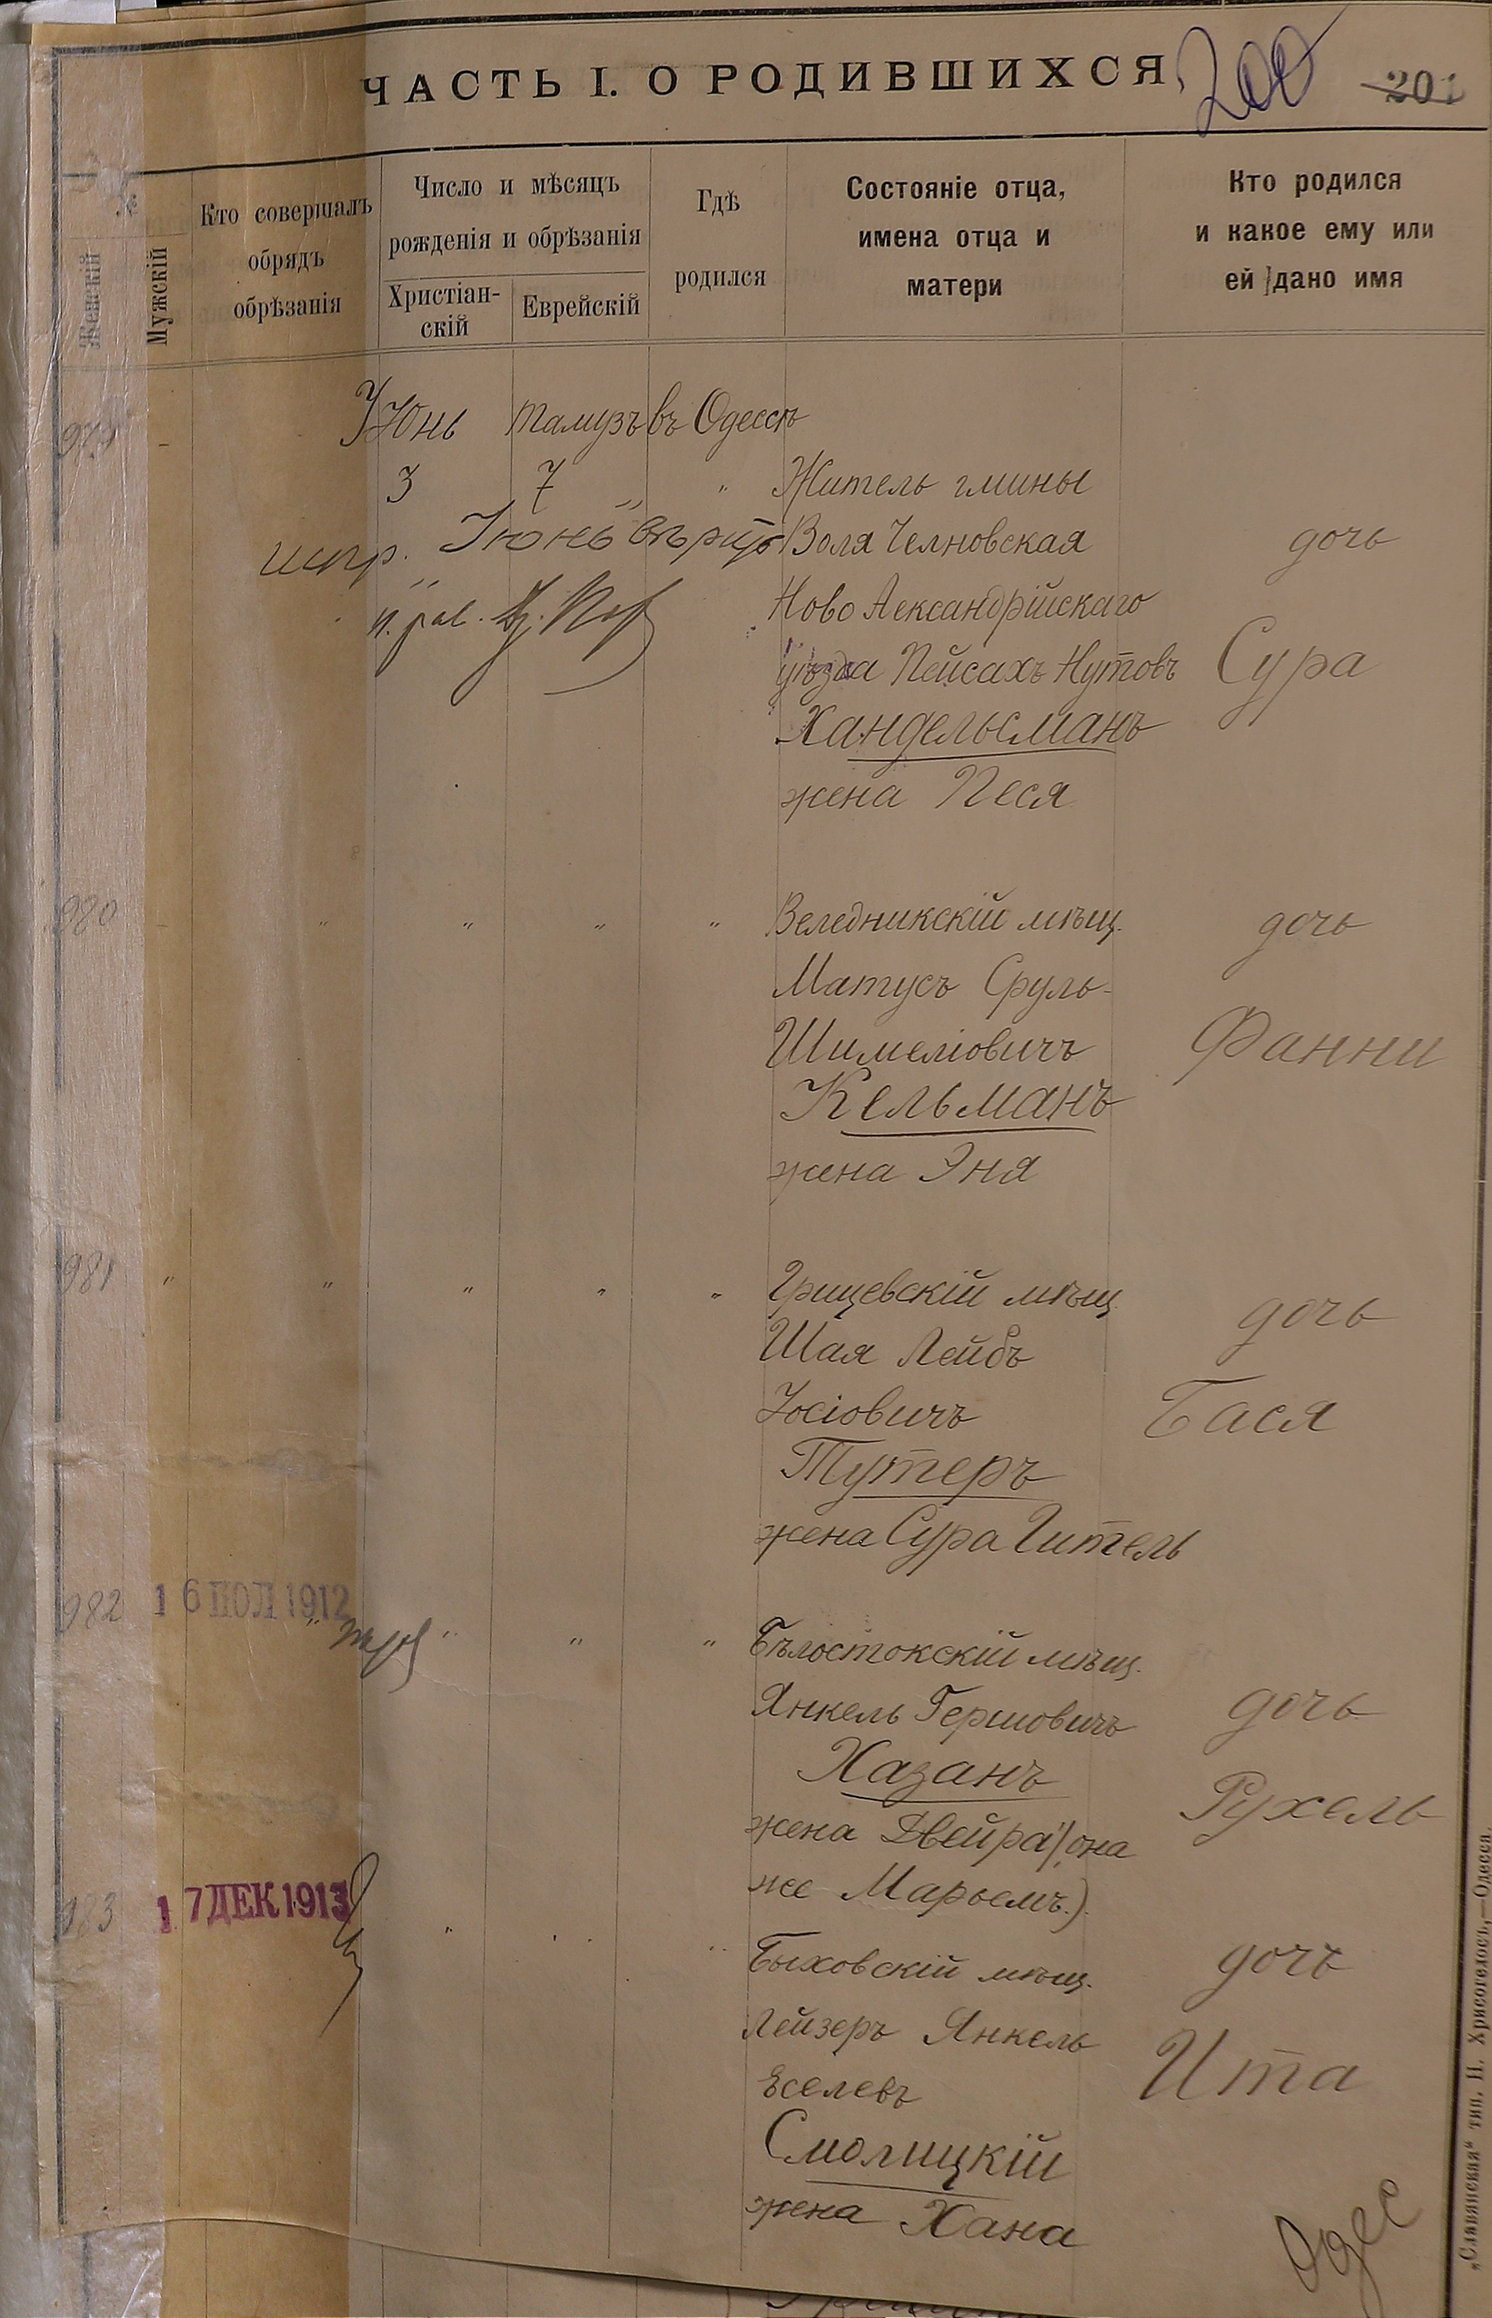 ЧАСТЬ I. О РОДИВШИХСЯ. 200 201
№
Женскій
Мужскій
Кто совершалъ
обрядъ
обрѣзанія
Число и мѣсяцъ
рожденія и обрѣзанія
Христіан-
скій
Еврейскій
Гдѣ
родился
Состояніе отца,
имена отца и
матери
Кто родился
и какое ему или
ей дано имя
979 - Іюнь Тамузъ въ Одессѣ
3 7 " Житель гмины
испр. Іюнь Воля Челновская дочь
Ново Аександрійскаго
уѣзда Пейсахъ Нутовъ Сура
Хандельсманъ
жена Песя
980 - " " " " Веледникскій мѣщ. дочь
Матусъ Сруль-
Шимеліовичъ Фанни
Кельманъ
жена Эня
981 " " " " " Грицевскій мѣщ. дочь
Шая Лейбъ
Іосіовичъ Бася
Тутеръ
жена Сура Гитель
982 16 ІЮЛ 1912 " " " " Бѣлостокскій мѣщ.
Янкель Гершовичъ дочь
Хазанъ
жена Двейра (она Рухель
же Марьемъ.)
983 17 ДЕК 1913 " " " Быховскій мѣщ. дочь
Лейзеръ Янкель
Еселевъ Ита
Смолицкій
жена Хана
Одес
„Славянская" тип. Н. Хрисогелосъ,—Одесса.